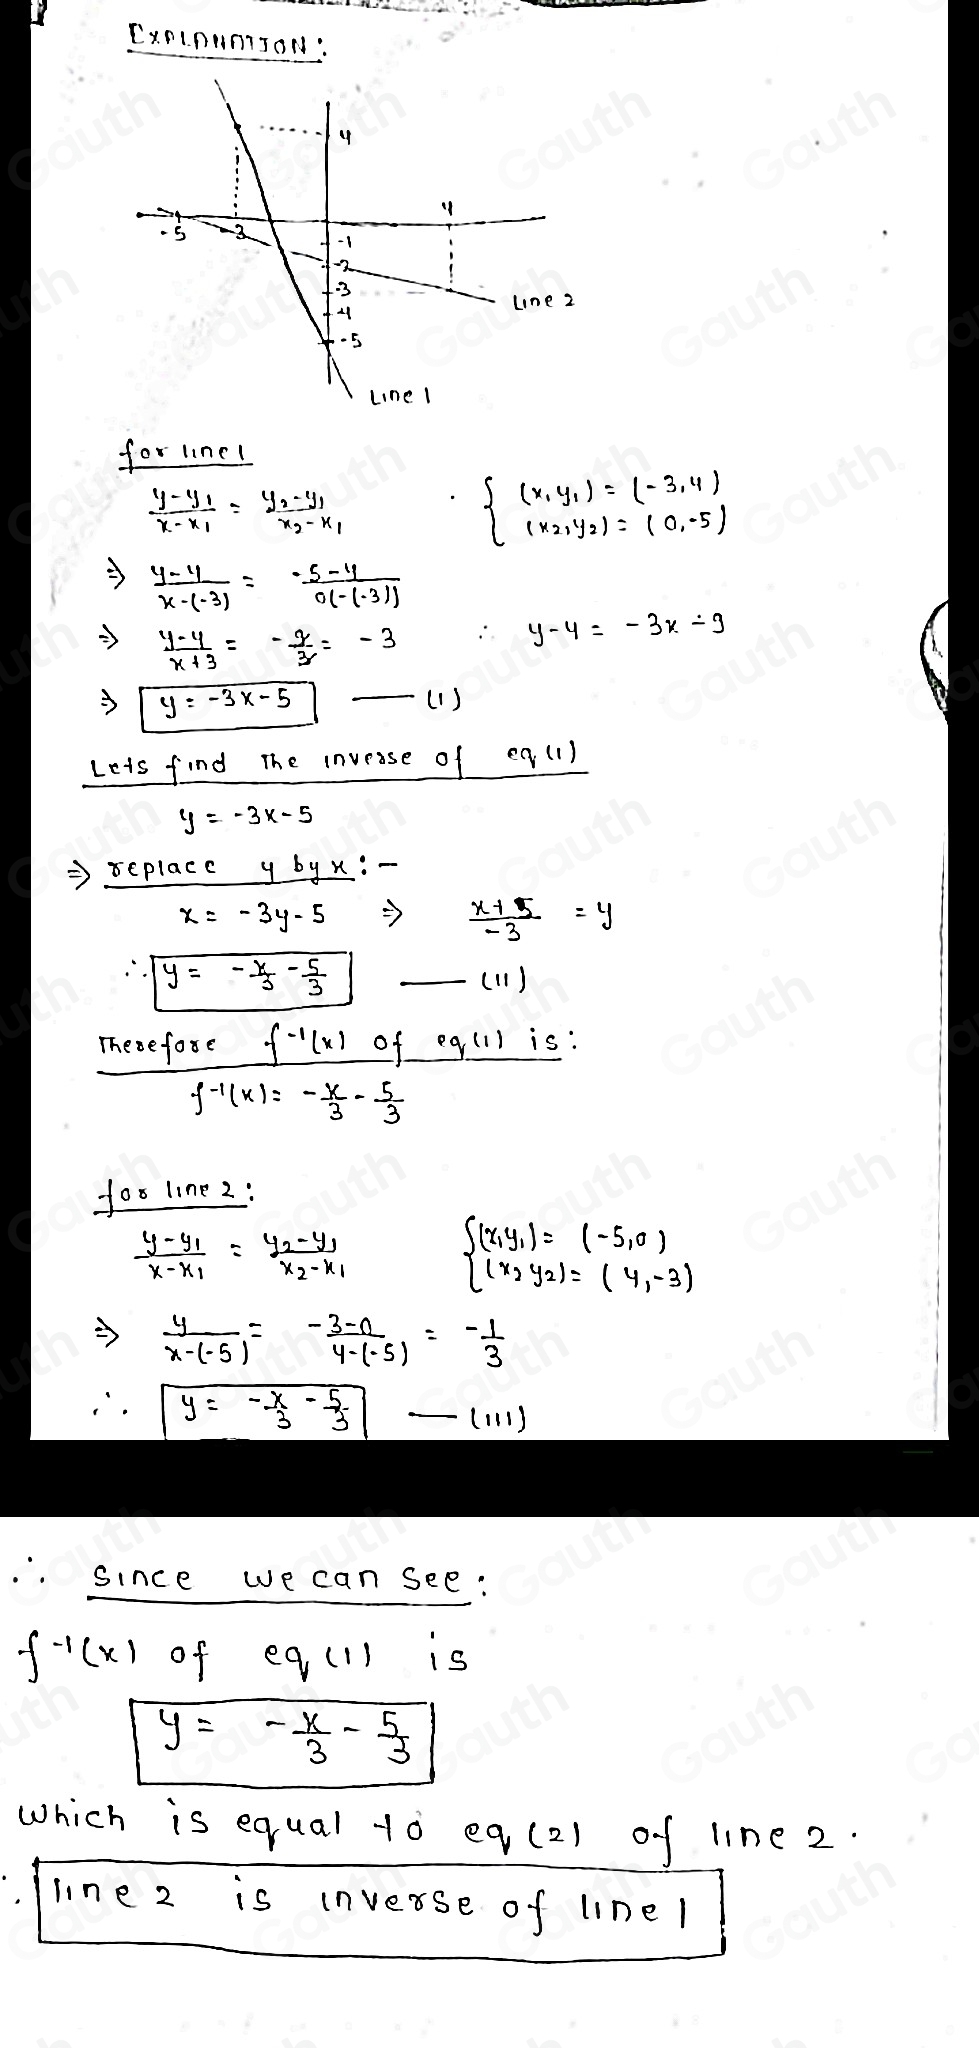 EXPLANATION:
4
4
-5 -3
-1
-2
-3
-4
-5
Line 2
Line 1
for line 1
y-y₁/x-x₁ = y₂-y₁/x₂-x₁ { (x₁y₁) = (-3,4)
(x₂,y₂) = (0,-5)
⇒ y-4/x-(-3) = -5-4/0(-(-3))
⇒ y-4/x+3 = -9/3 = -3 ∴ y-4 = -3x-9
⇒ y = -3x-5 — (I)
Lets find The inverse of eq (1)
y = -3x-5
⇒ replace y by x: -
x = -3y-5 ⇒ x+5/-3 = y
∴ y = -x/3 - 5/3 — (II)
Therefore f⁻¹(x) of eq(1) is:
f⁻¹(x) = -x/3 - 5/3
for line 2:
y-y₁/x-x₁ = y₂-y₁/x₂-x₁ { (x₁y₁) = (-5,0)
(x₂y₂) = (4,-3)
⇒ y/x-(-5) = -3-0/4-(-5) = -1/3
∴ y = -x/3 - 5/3 — (III)
∴ since we can see:
f⁻¹(x) of eq (1) is
y = -x/3 - 5/3
which is equal to eq (2) of line 2.
∴ line 2 is inverse of line 1
Gauth